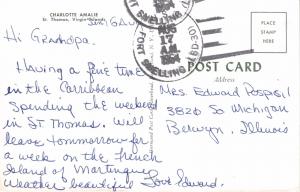 CHARLOTTE AMALIE
St. Thomas, Virgin Islands
Hi Grandpa.
Having a fine time
in the Carribean
Spending the weekend
in ST Thomas. Will
leave tommorrow for
a week on the French
Island of Martinque
Weather beautiful Love Edward.
POST CARD
Address
Mrs. Edward Pospisil
3820 So Michigan
Berwyn, Illinois